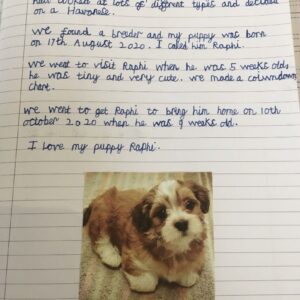 had looked at lots of different types and decided
on a Havanese.
We found a breeder and my puppy was born
on 17th August 2020. I called him Raphi.
We went to visit Raphi when he was 5 weeks old,
he was tiny and very cute. We made a coundown
chart.
We went to get Raphi to bring him home on 10th
october 2020 when he was 9 weeks old.
I love my puppy Raphi.